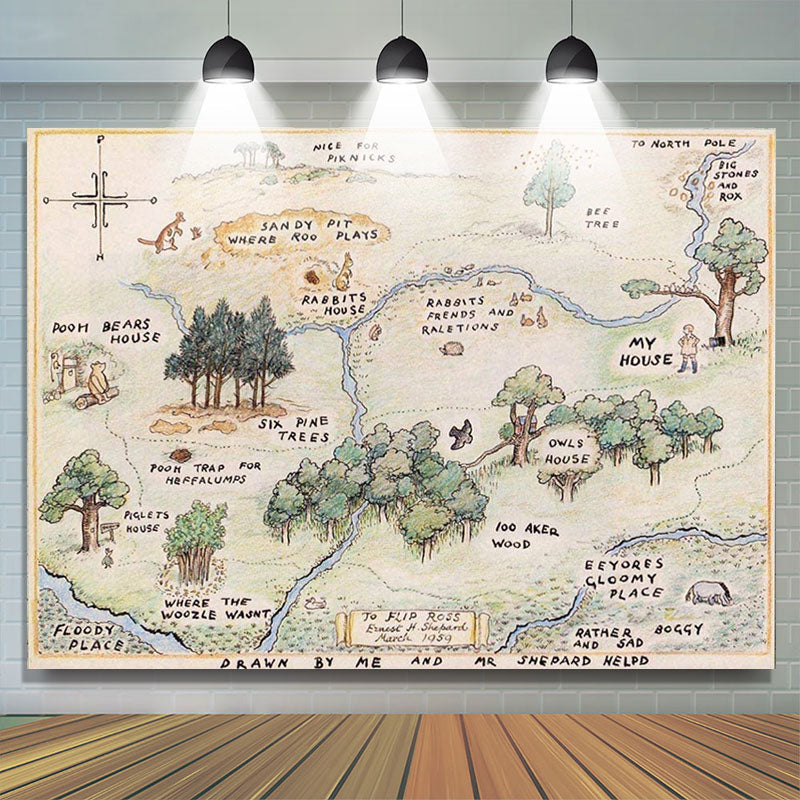 P
O
O
H
NICE FOR
PIKNICKS
TO NORTH POLE
BIG
STONES
AND
ROX
SANDY PIT
WHERE ROO PLAYS
BEE
TREE
RABBITS
HOUSE
RABBITS
FRENDS AND
RALETIONS
POOH BEARS
HOUSE
MY
HOUSE
SIX PINE
TREES
OWLS
HOUSE
POOH TRAP FOR
HEFFALUMPS
PIGLETS
HOUSE
100 AKER
WOOD
EEYORES
GLOOMY
PLACE
WHERE THE
WOOZLE WASNT
FLOODY
PLACE
TO FLIP ROSS
Ernest H. Shepard
March 1959
RATHER BOGGY
AND SAD
DRAWN BY ME AND MR SHEPARD HELPD